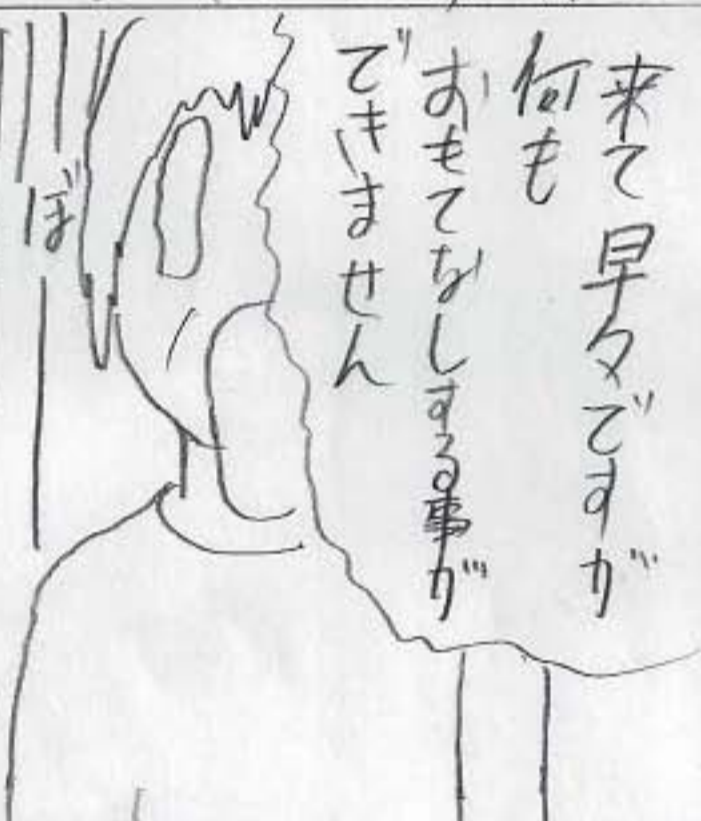 来て早々ですが
何も
おもてなしする事が
できません
ぼ